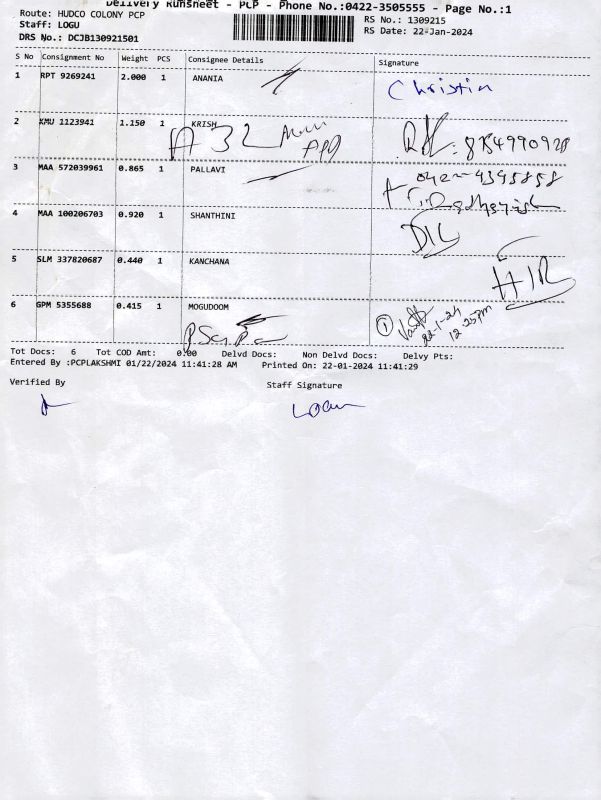 Delivery Runsheet - PCP - Phone No.:0422-3505555 - Page No.:1
Route: HUDCO COLONY PCP
Staff: LOGU
DRS No.: DCJB130921501
RS No.: 1309215
RS Date: 22-Jan-2024
S No Consignment No Weight PCS Consignee Details Signature
1 RPT 9269241 2.000 1 ANANIA Christin
2 KMU 1123941 1.150 1 KRISH
A 32
3 MAA 572039961 0.865 1 PALLAVI
4 MAA 100206703 0.920 1 SHANTHINI
DIL
5 SLM 337820687 0.440 1 KANCHANA
HIR
6 GPM 5355688 0.415 1 MOGUDOOM
1
22-1-24
12.25pm
Tot Docs: 6 Tot COD Amt: 0.00 Delvd Docs: Non Delvd Docs: Delvy Pts:
Entered By :PCPLAKSHMI 01/22/2024 11:41:28 AM Printed On: 22-01-2024 11:41:29
Verified By Staff Signature